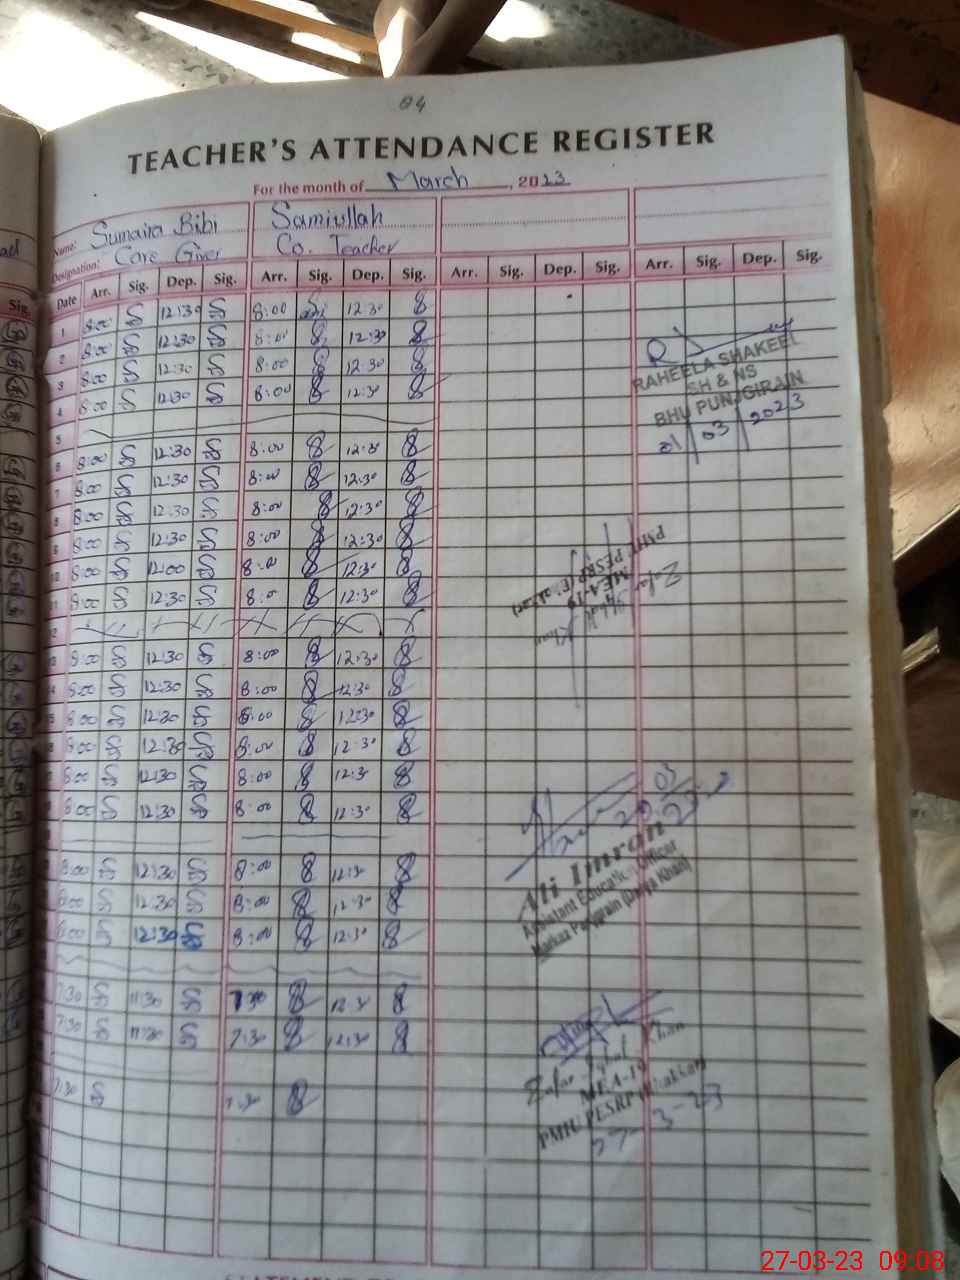 04
TEACHER'S ATTENDANCE REGISTER
For the month of March, 2023
Name: Sumaira Bibi Samiullah
Designation: Care Giver Co. Teacher
Sig. Date Arr. Sig. Dep. Sig. Arr. Sig. Dep. Sig. Arr. Sig. Dep. Sig. Arr. Sig. Dep. Sig.
1 8:00 12:30 8:00 12:30
2 8:00 12:30 8:00 12:30
3 8:00 12:30 8:00 12:30
4 8:00 12:30 8:00 12:30
5
6 8:00 12:30 8:00 12:30
7 8:00 12:30 8:00 12:30
8 8:00 12:30 8:00 12:30
9 8:00 12:30 8:00 12:30
10 8:00 12:00 8:00 12:30
8:00 12:30 8:00 12:30
8:00 12:30 8:00 12:30
8:00 12:30 8:00 12:30
8:00 12:30 8:00 12:30
8:00 12:30 8:00 12:30
8:00 12:30 8:00 12:30
8:00 12:30 8:00 12:30
8:00 12:30 8:00 12:30
8:00 12:30 8:00 12:30
8:00 12:30 8:00 12:30
7:30 11:30 7:30 12:30
7:30 11:30 7:30 12:30
7:30 7:30
RAHEELA SHAKEEL
SH & NS
BHU PUNJGIRAIN
01 03 2023
MEA-19
PMIU PESRP
20.03
Ali Imran
Assistant Education Officer
Markaz Panjgrain (Darya Khan)
Zafar Iqbal Khan
MEA-19
PMIU PESRP (Bhakkar)
27-3-23
27-03-23 09:08